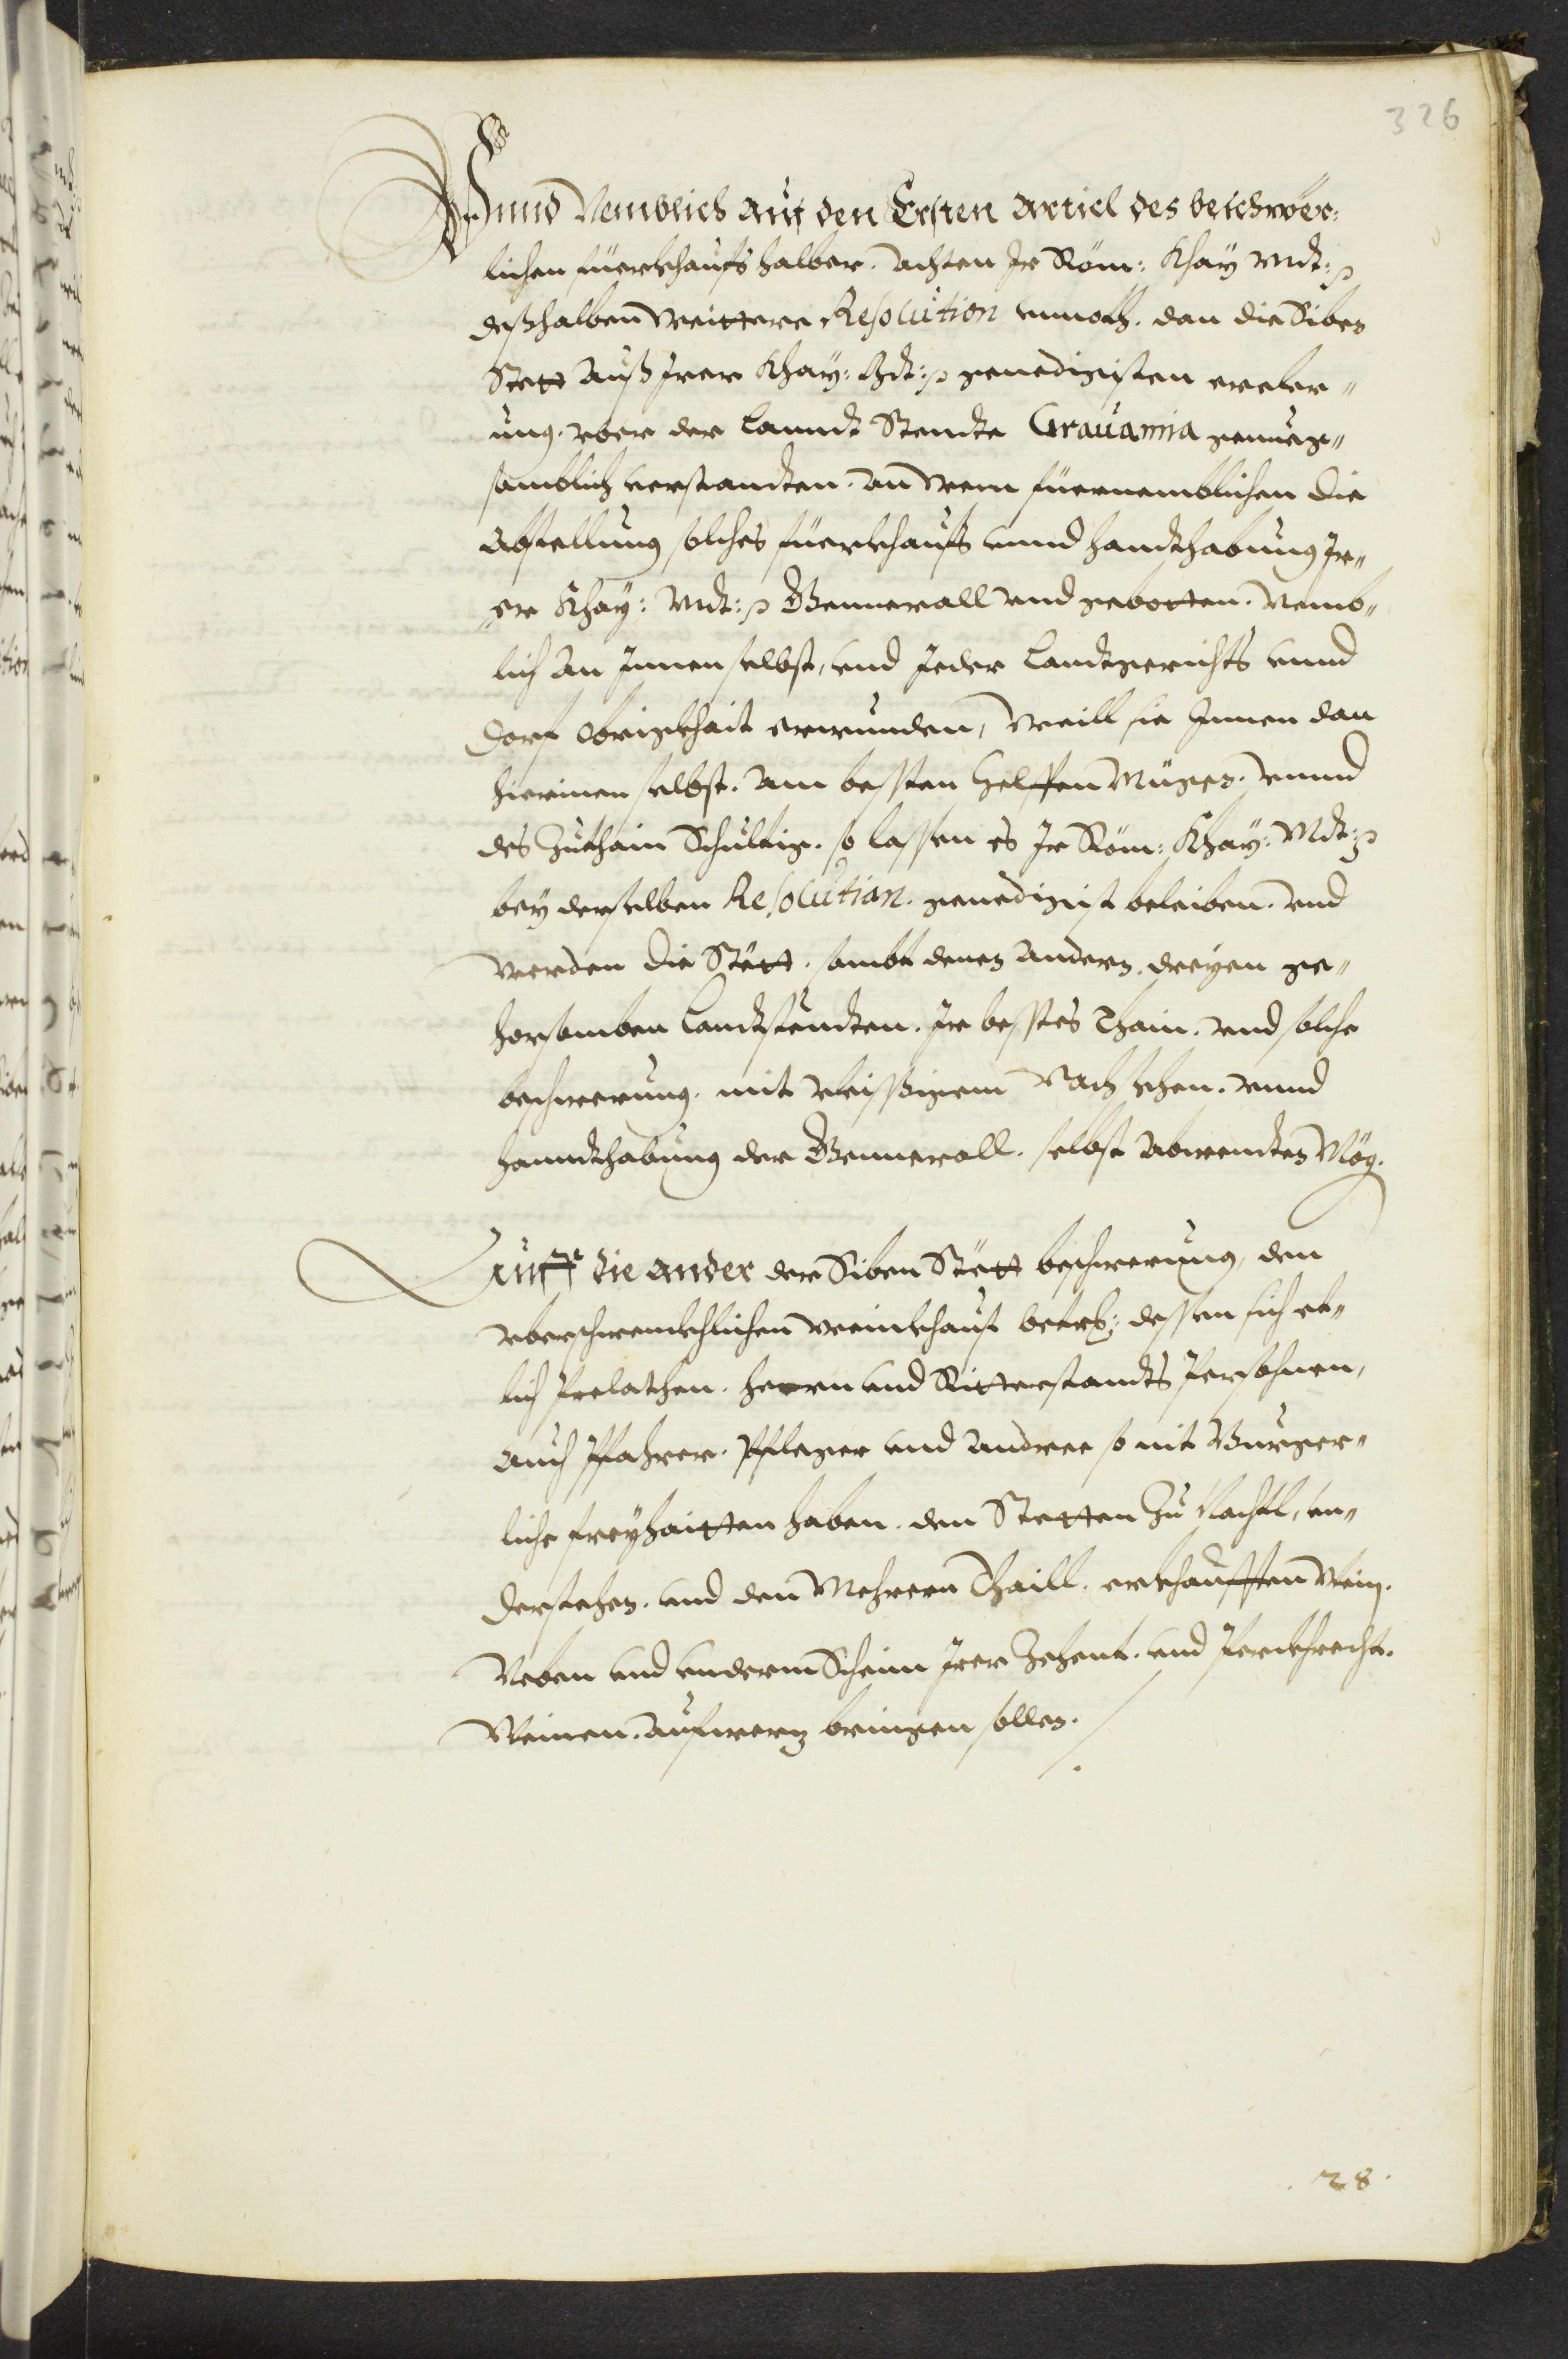 326
Vnnd Nemblich auf den Ersten Articl des beschwer:
lichen fuerkhaufs halber. achten Ir Röm: Khay Mt:
deßhalben weittere Resolution vnnoth. dan die Siben
Stett auß Irer Khay: Mt: genedigisten ercler„
ung. vber der Lanndt Stendte Grauamia genueg„
samblich verstandten. an wem füernemblichen die
Abstellung solches fuerkhaufs vnnd handthabung Ir„
er Khay: Mt: Gennerall vnd gebotten. Nemb„
lich An Innen selbst, vnd Jeder Landtgerichts vnnd
Dorf Obrigkhait erwunden, weill sie Innen dan
hierinen selbst. am bessten helffen mügen. vnnd
des zuthain Schultig. so lassen es Ir Röm: Khay: Mt:
bey derselben Resolution. genedigist beleiben. vnd
werden die Stött. sambt denen andern. dreyen ge„
horsamben Landtständten. Ir besstes thain. vnd solche
beschwerung. mit vleissigem Nachsehen. vnnd
hanndthabung der Gennerall. selbst abwendten Mög.
Auff die ander der Siben Stött beschwerung, den
vberschwencklichen weinkhauf betrf: dessen sich et„
lich Prelathen. herrn vnd Ritterstandts Persohnen,
auch Pfahrer. Pfleger vnd andere so nit Burger„
liche freyhaitten haben. den Stetten zu Nachtl, vn„
derstehen. vnd den Mehrern Thaill. erkhaufften Wein.
Neben vnd vnderm Schein Irer Zehent. vnd Perckhrecht.
Weinen. aufwerz bringen sollen.
28.